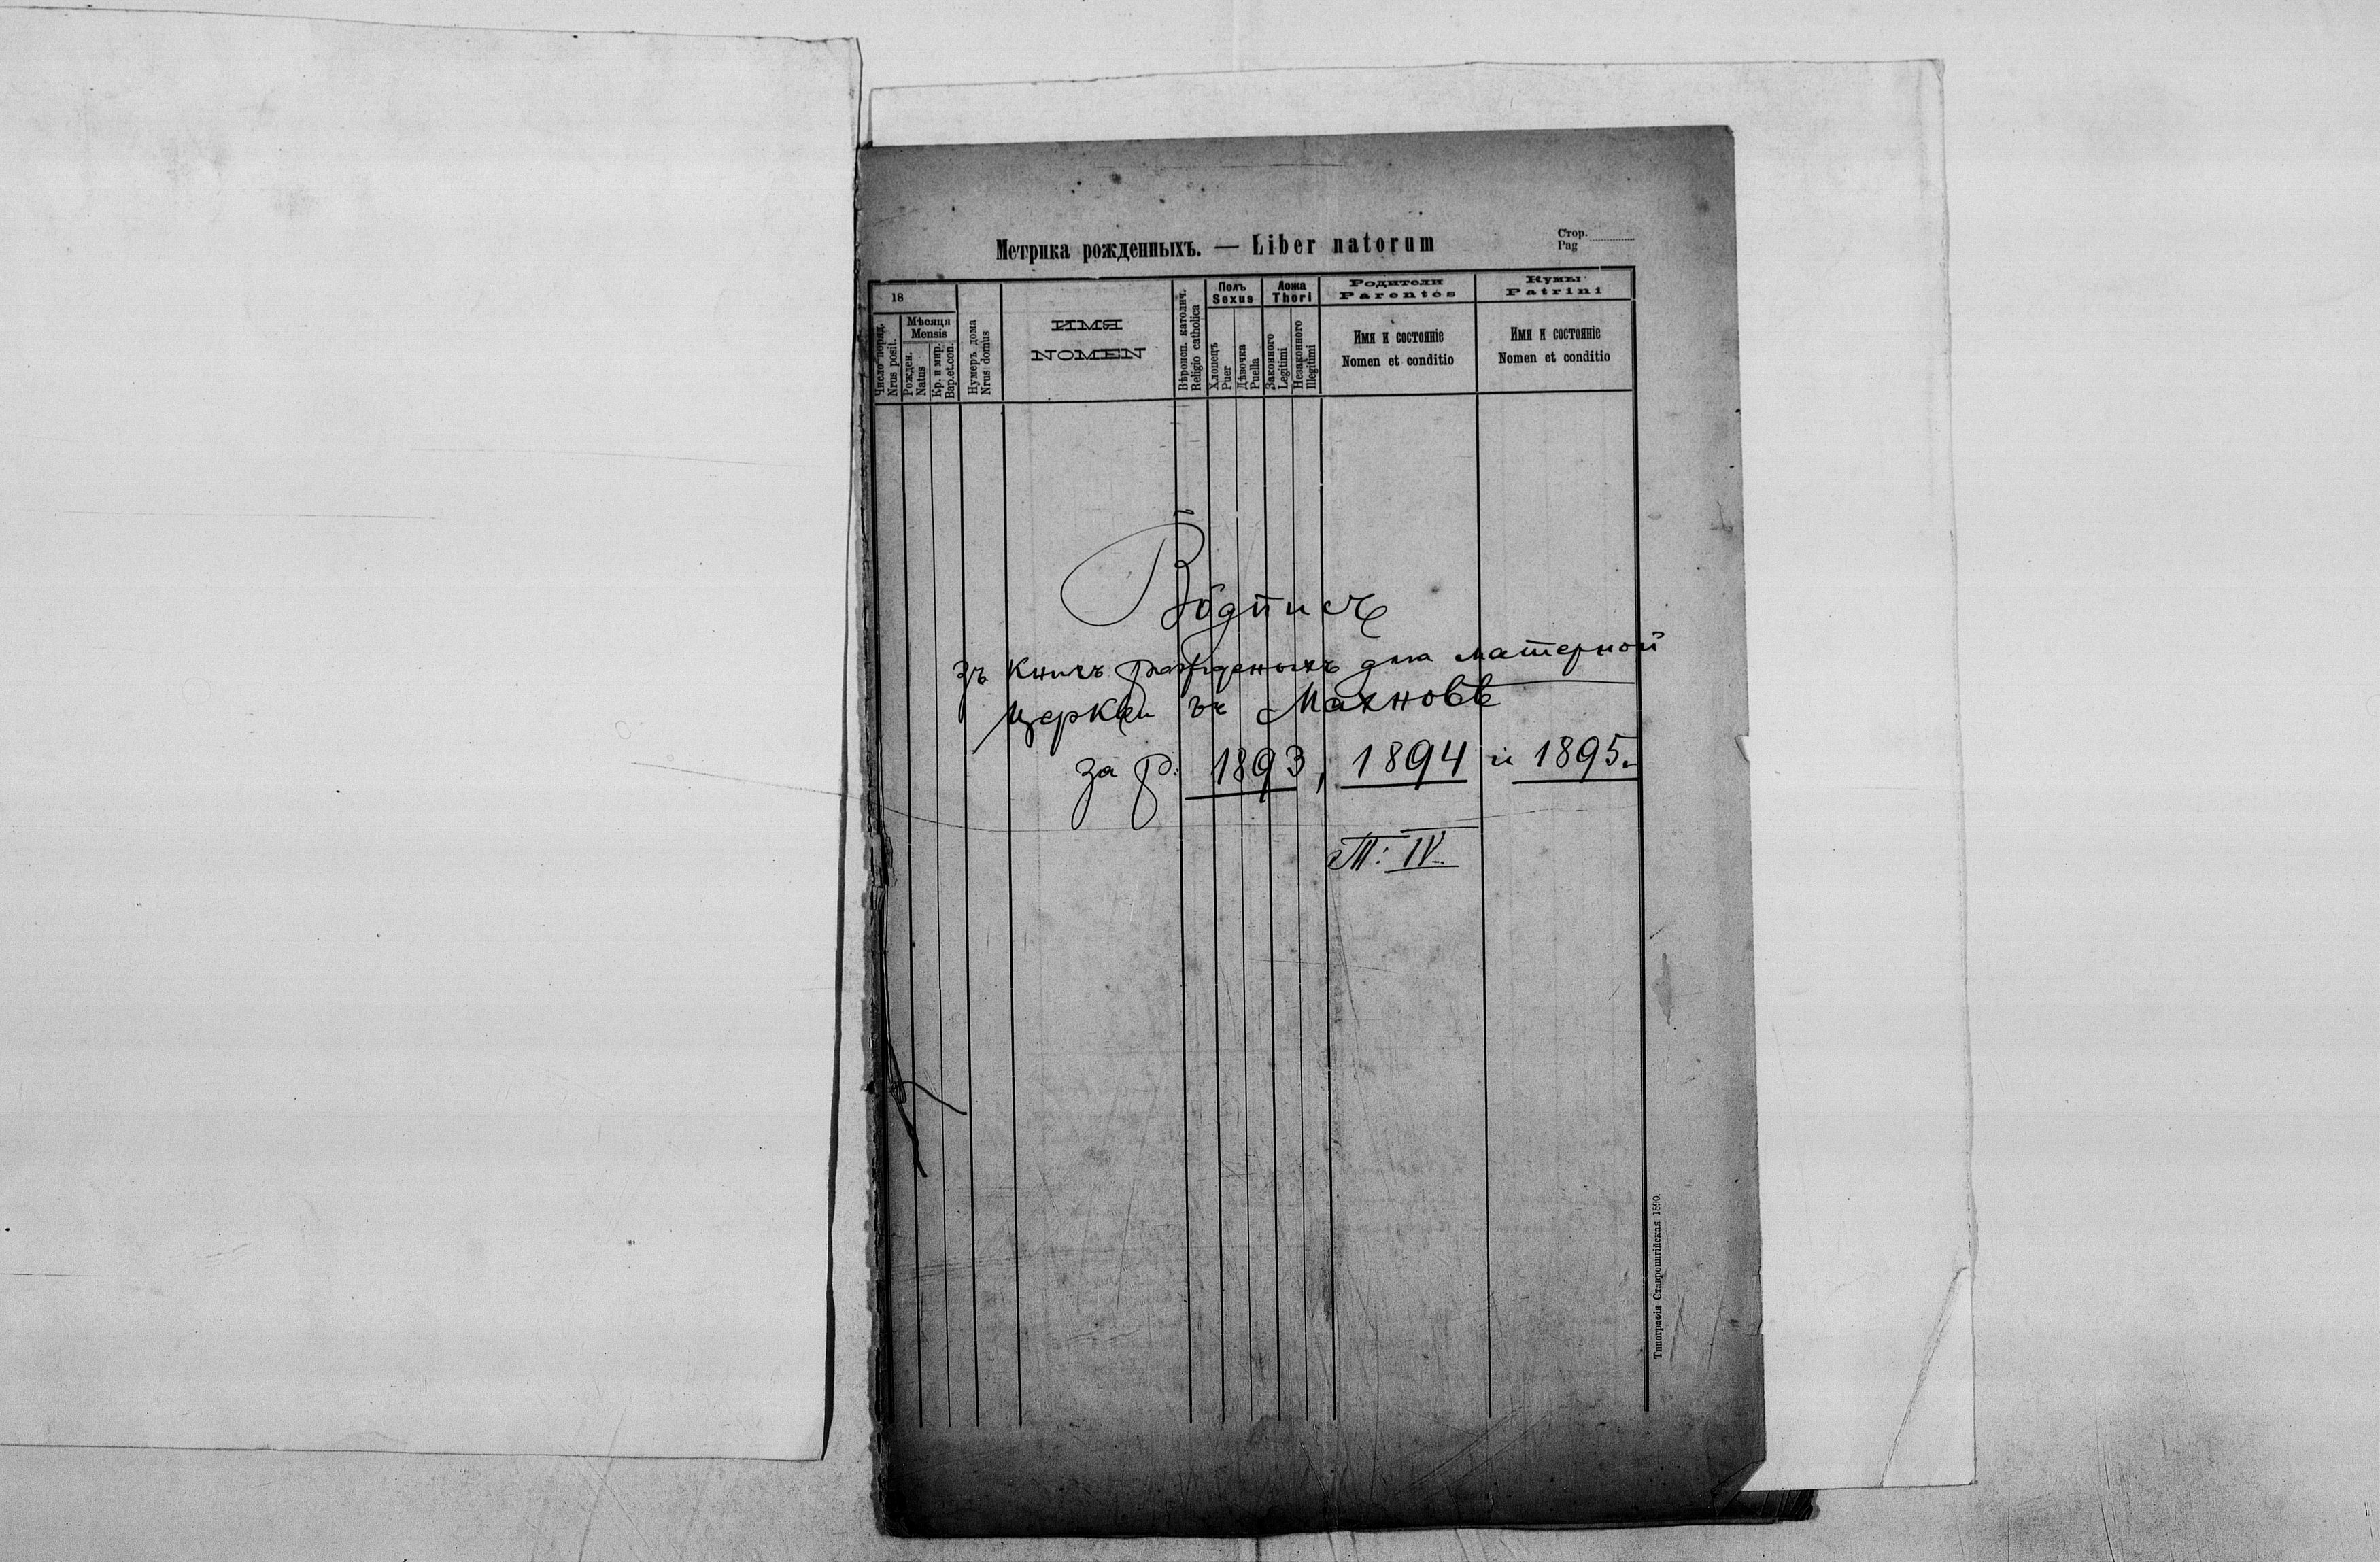 Метрика рожденныхъ. — Liber natorum
Стор.
Pag
18
Число поряд.
Nrus posit.
Мѣсяця
Mensis
Рожден.
Natus
Кр. и мир.
Bap.et.con.
Нумеръ дома
Nrus domus
ИМЯ
NOMEN
Вѣроисп. католич.
Religio catholica
Полъ
Sexus
Хлопецъ
Puer
Дѣвочка
Puella
Ложа
Thori
Законного
Legitimi
Незаконного
Illegitimi
Родители
Parentes
Имя и состоянiе
Nomen et conditio
Кумы
Patrini
Имя и состоянiе
Nomen et conditio
Вôдпись
зъ книгъ рожденыхъ для матерной
церкви въ Махновѣ
за р. 1893, 1894 и 1895.
Т: IV.
Типографiя Ставропигiйская 1890.